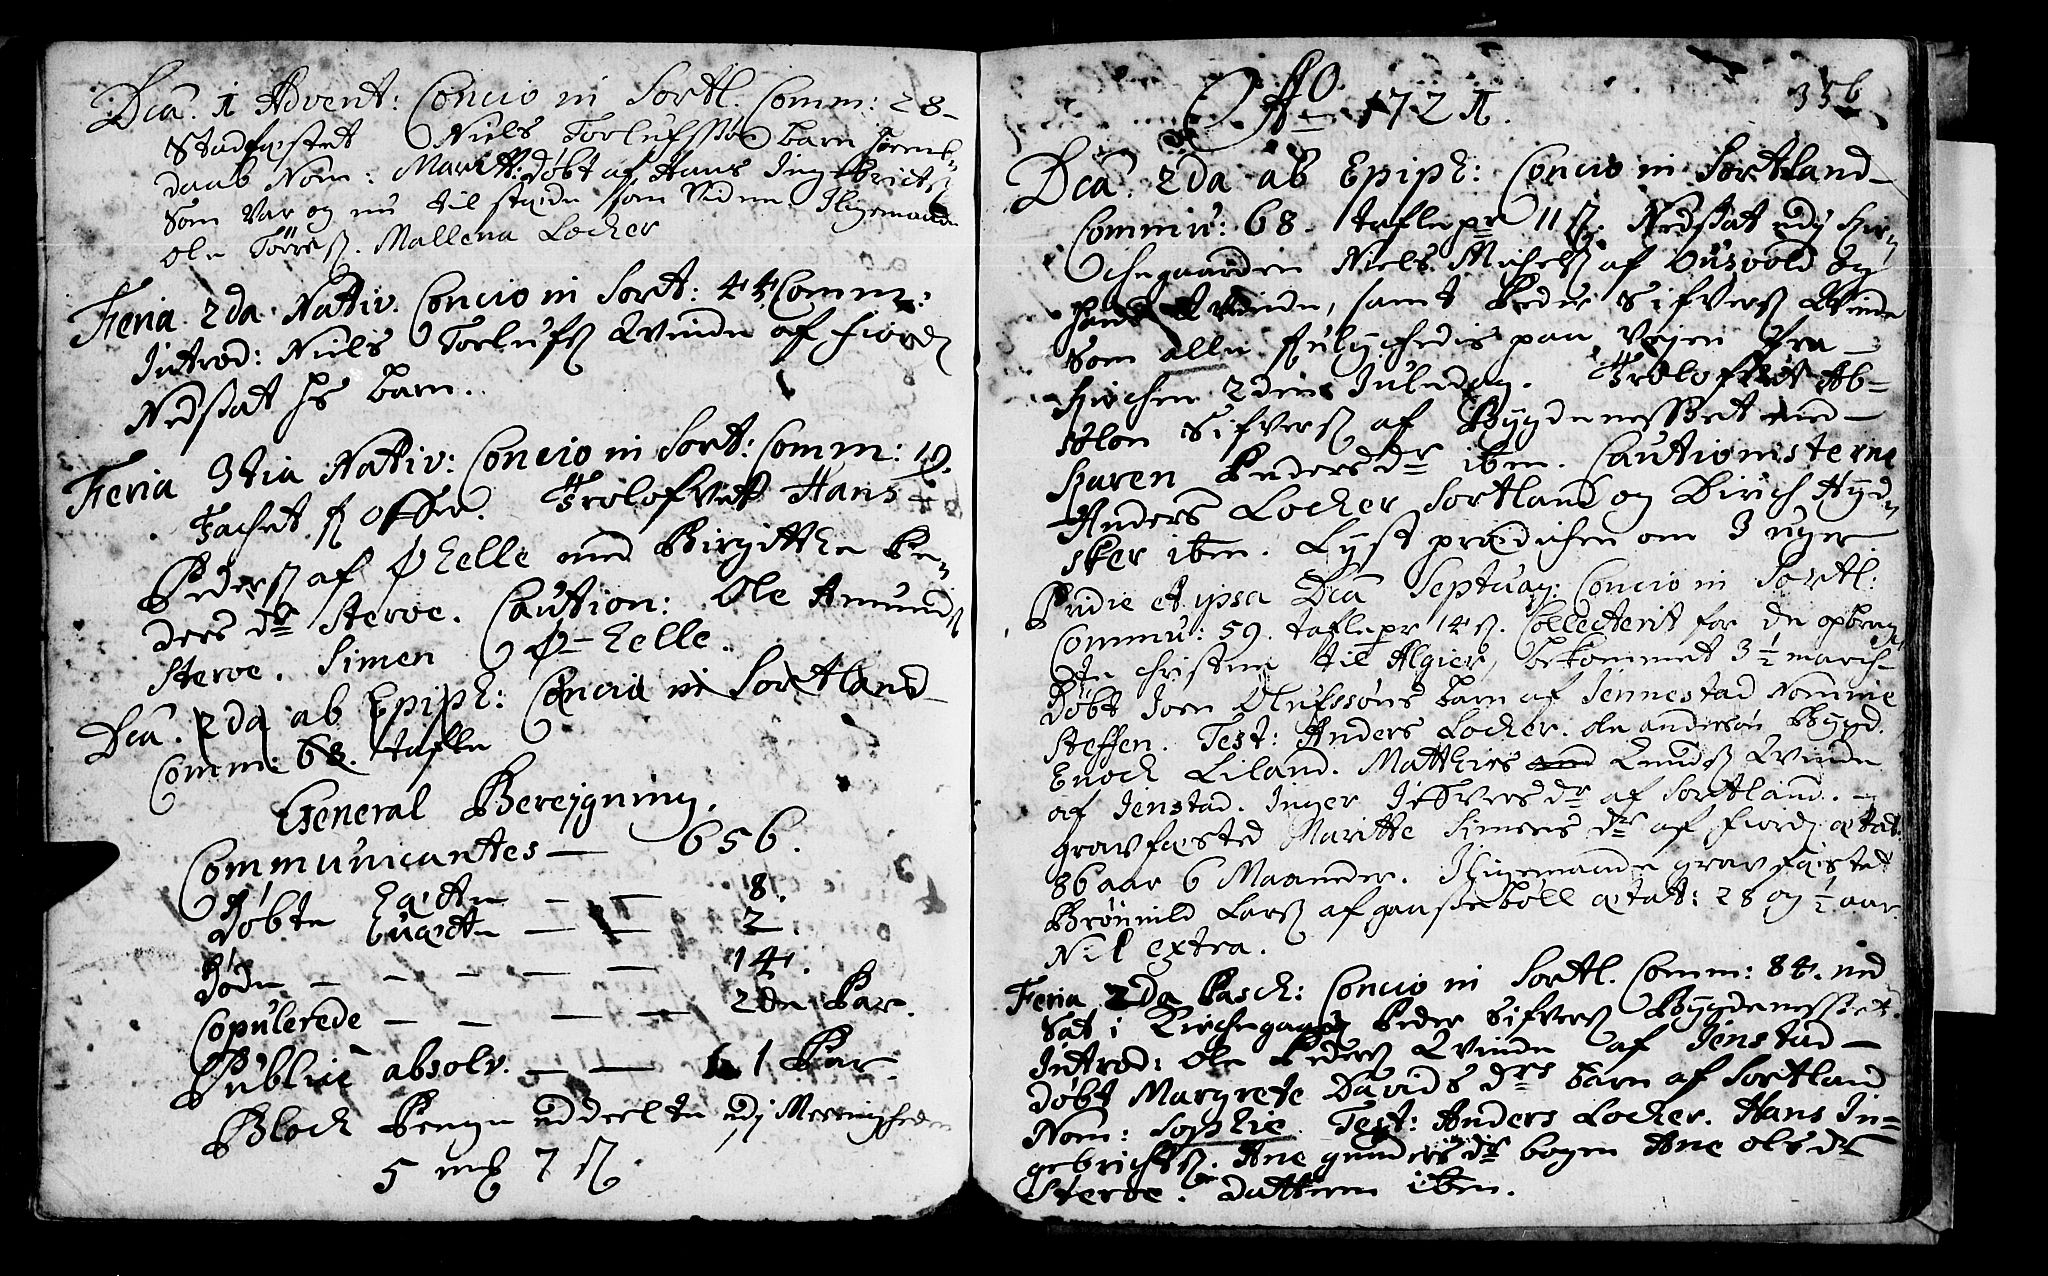 Dca. 1 Advent: Concio in Sortl. Comm: 28
Stadfæstet Niels Torlufssøn barn hiemb=
daab Nom: Maritt. døbt af Hans Ingebrictß
Som var og nu tilstæde som vidne. Iligemaade
ole Törrisß. Mallena Locher
Feria 2da Nativ. Concio in Sort: 44 Comm:
Introd: Niels Torlufß Qvinde af Fiord
Nedsat hs barn.
Feria 3tia Nativ: Concio in Sort: Comm: 19.
Tachet ß offer. Trolofvet Hans
Pedersß af Qhelle med Birgitthe Pe=
ders dr Steroe. Caution: Ole Amundß
Steroe. Simen Q-helle.
Dca. 2da ab Epiph: Concio in Sortland
Comm: 68. tafle
General Beregning.
Communicantes — 656.
Døbte Ægte — — 8.
Uægte — — 2.
Døde — — — — 14.
Copulerede — — — 2de Par.
Publicè absolv. — — 1 Par.
Bloch Penge uddeelte udj Menigheden
5 mk 7 ß.
356
Ao. 1721.
Dca. 2da ab Epiph: Concio in Sortland
Commu: 68. taflepr 11 ß. Nedsat udj Kir=
chegaarden Niels Michelsß af Ousvold og
hans qvinde, samt Peder Sifversß Qvinde
Som alle ulychedis paa Vejen fra
Kirchen 2den Juledag. Trolofvet Ab=
solon Sifversß af Bygdenesset med
Karen Peders dr ibm. Cautionisterne
Anders Locher Sortland og Dirich Hyd=
sker ibm. Lyst prædichen om 3 uger
Pridie et ipsa Dca Septuag: Concio in Sortl:
Commu: 59. taflepr 14 ß. Collecterit for de opbrag
te christne til Algier, bekommet 3 ½ march
Døbt Joen Olufssøns barn af Jennestad Nomine
Steffen. Test: Anders Locher. ole andersøn Bygd.
Enoch Liland. Matthies Knudß Qvinde
af Jenstad. Inger Sifvers dr af Sortland.
gravfæsted Maritte Simens dr af Fiord ætat.
86 aar 6 Maaneder. Iligemaade gravfæstet
Brönnild Larß af gaussebøll ætat: 28 og ½ aar
Nil extra.
Feria 2da Pasch: Concio in Sortl. Comm: 84. ned
Sat i Kirchegaarden Peder Sifversß Bygdenesset.
Introd: Ole Pedersß Qvinde af Jenstad
døbt Margrete Davids drs barn af Sortland
Nom: Sophie. Test: Anders Locher. Hans In=
gebrichtsß. Ane gunders dr bogen Ane ols dr
Steroe. datteren ibm.